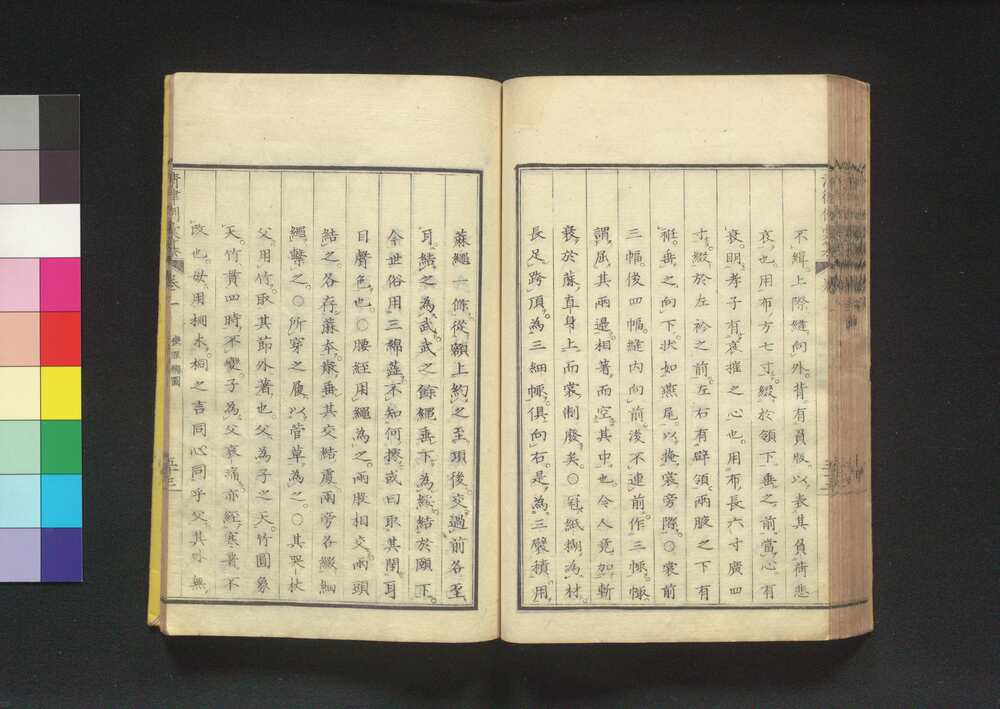 不緝上際縫向外背有員版以表其負荷悲
哀也用布方七寸綴於領下垂之前當心有
衰明孝子有哀摧之心也用布長六寸廣四
寸綴於左衿之前左右有辟領兩腋之下有
衽垂之向下狀如燕尾以掩裳旁際〇裳前
三幅後四幅縫內向前後不連前作三㡇㡇
謂屈其兩邊相著而空其中也令人竟加斬
衰於麻直身上而裳制廢矣〇冠紙糊為材
長足跨頂為三細㡇俱向右是為三襞積用
蔴繩一條從額上約之至項後交過前各至
耳結之為武武之餘繩垂下為纓結於頤下
今世俗用三綿蕋不知何據或曰取其閉耳
目聲色也〇腰絰用繩為之兩股相交兩頭
結之各存蔴本散垂其交結處兩旁各綴細
繩繫之〇所穿之履以菅草為之〇其哭杖
父用竹取其節外著也父為子之天竹圓象
天竹貫四時不變子為父哀痛亦經寒暑不
改也母用桐木桐之言同心同乎父其外無
清律
卷一
五十三